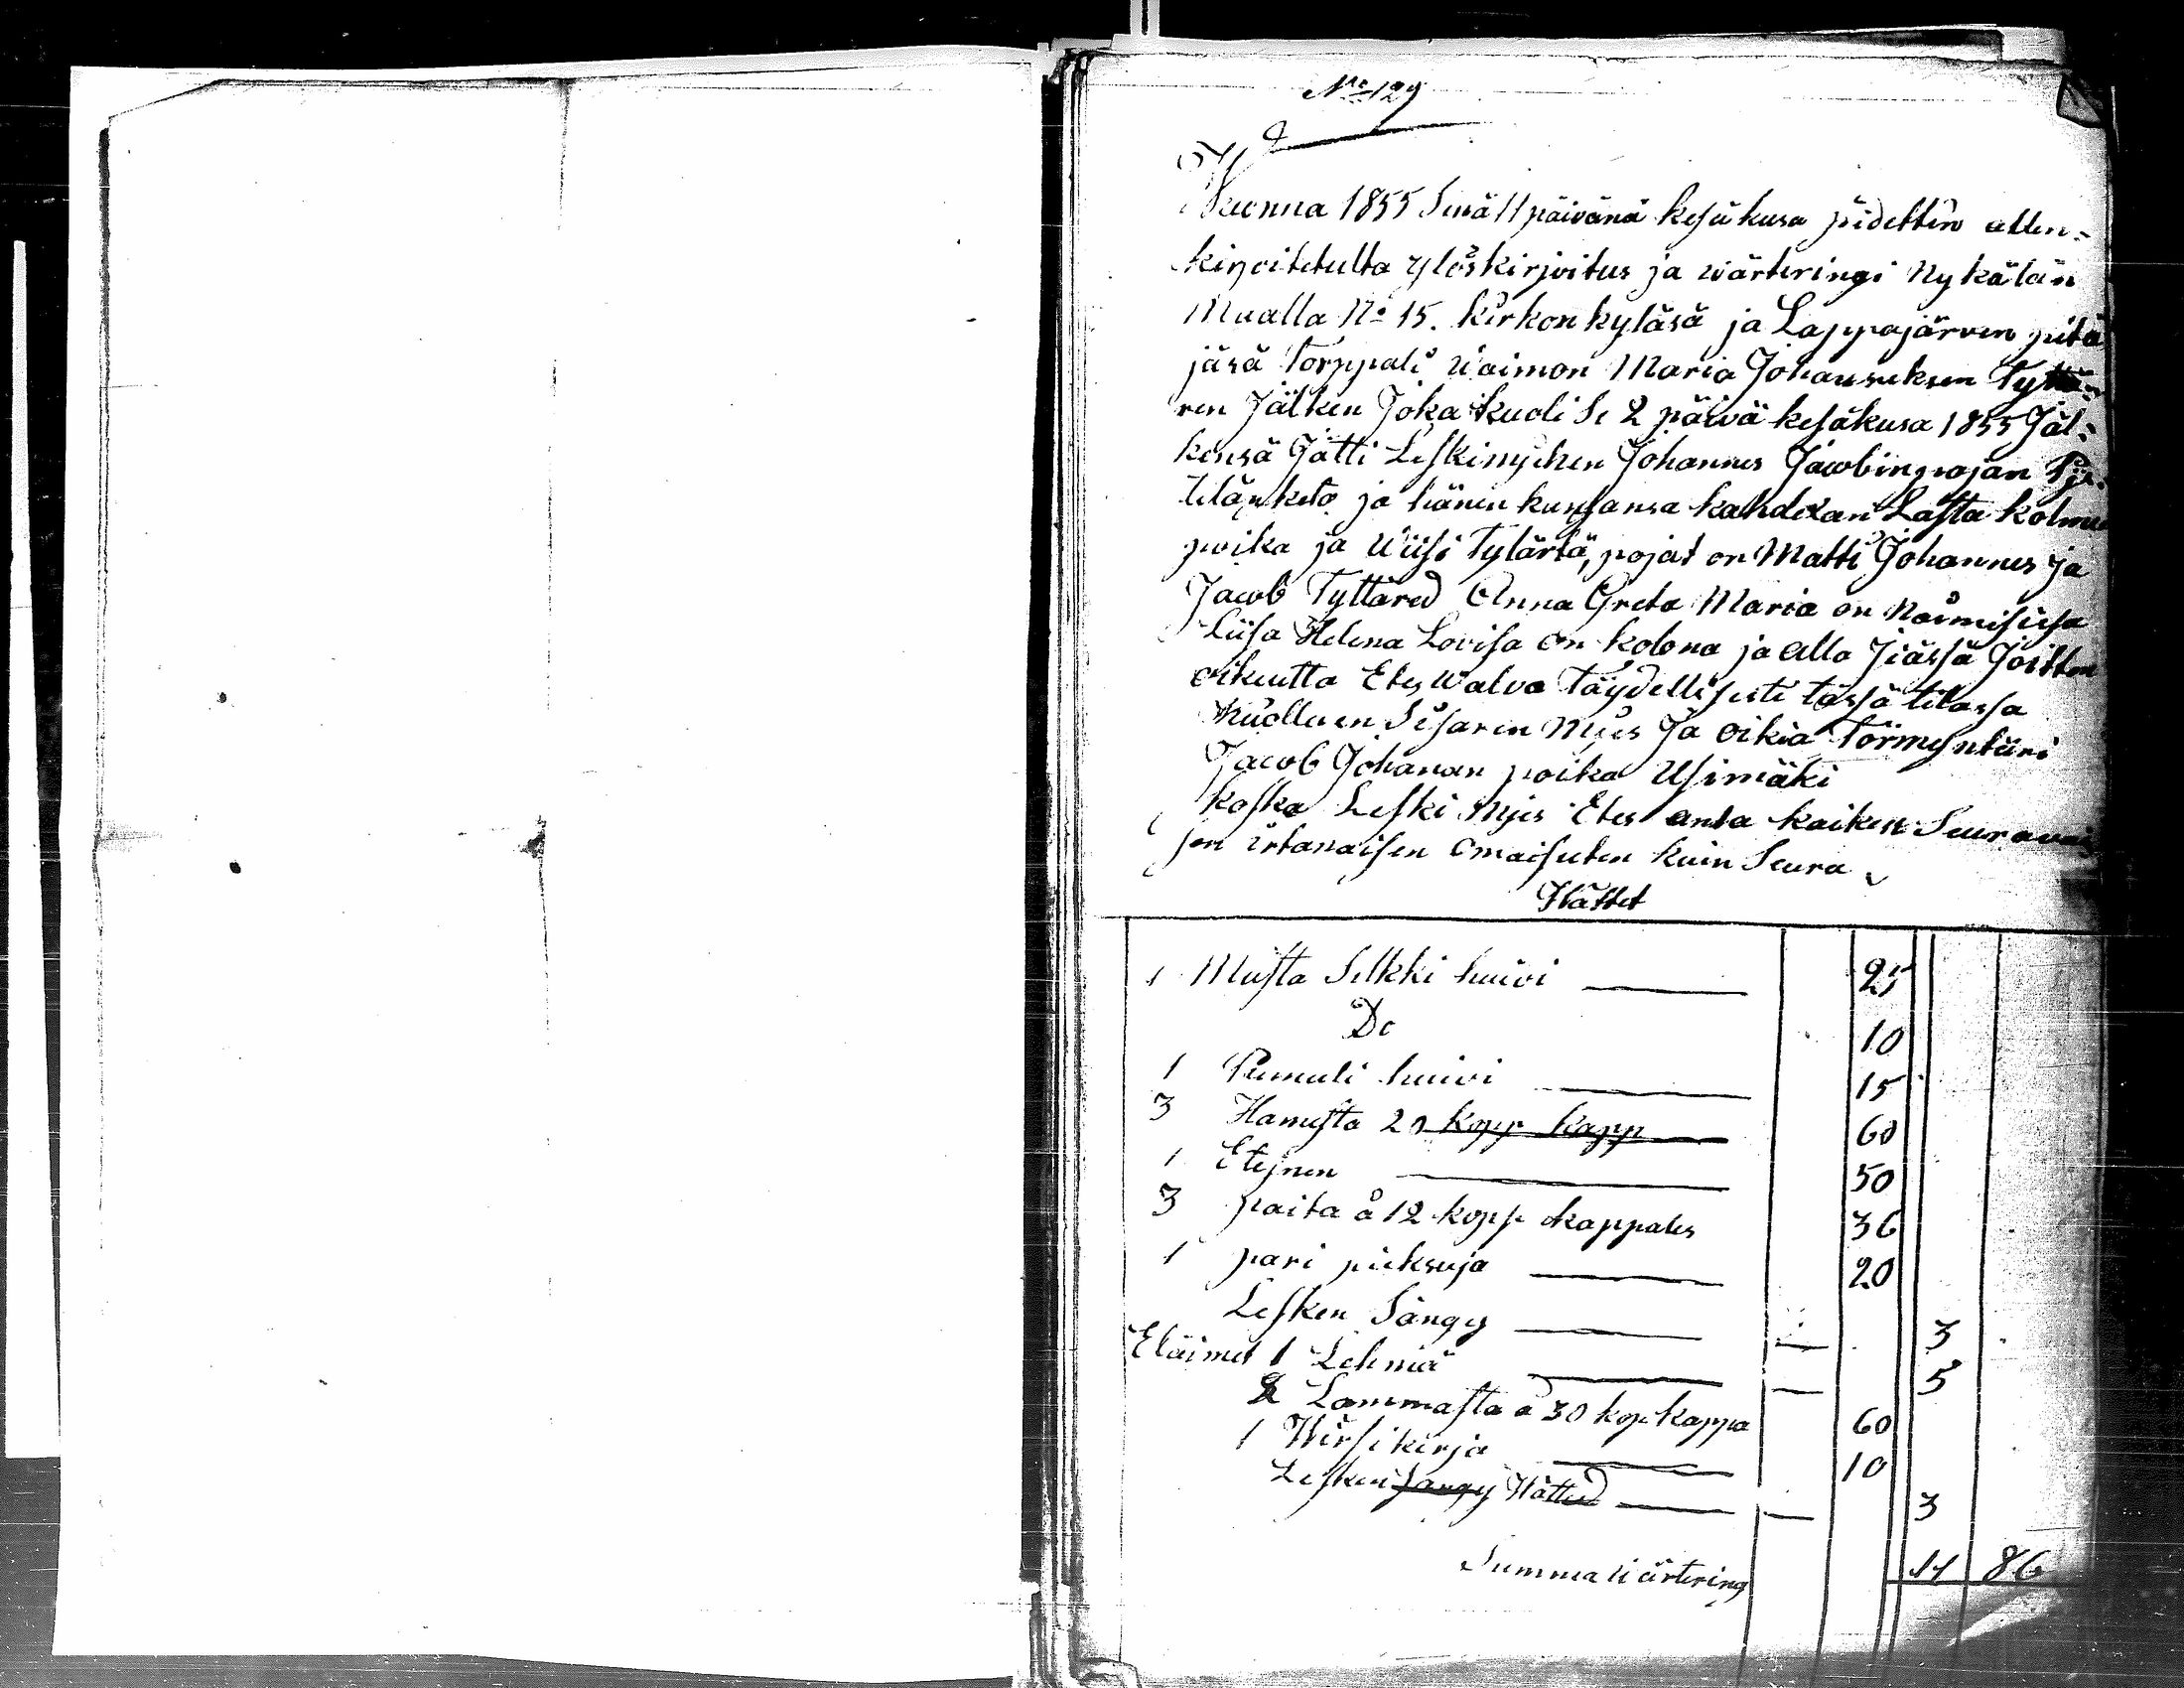 No 129
Wuonna 1855 Sinä 11 päivänä kesäkusa pidettin allen-
kirjoitetulta ylöskirjoitus ja wärteringi Nykälän
Maalla No 15. Kirkon kyläsä ja Lappajärven pitä
jäsä Torppali waimon Maria Johanneksen Tyttä-
ren Jälken Joka kuoli Se 2 päivä kesäkusa 1855 Jäl-
kensä Jätti Leskimjehen Johannes Jacobinpojan
ja hänen kansansa kahdexan Lasta kolme
poika ja wiisi Tytärtä, pojat on Matti Johannes ja
Jacob Tyttäred Anna Greta Maria on Naimisissa
Liisa Helena Lovisa on kotona ja alla Jiässä Joitten
oikeutta Etes Walvo Täydellisesti tässä tilassa
Kuolluen Sisaren Mies Ja oikia Förmyntäri
Jacob Johanan poika Usimäki
koska Leski Mjes Etes anta kaiken Seurawai
sen irtanaisen Omaisuten kuin Seura
Wättet
1 Musta Silkki huivi 25
Do 10
1 Pumuli huivi 15
3 Hamesta 20 kopp kapp 60
1 50
3 paita å 12 kopp kappales 36
1 pari pieksuja 20
Lesken Sängy — 3
Eläimet 1 Lehmä — 5
2 Lammasta å 30 kop kappa 60
1 Wirsikirja 10
Lesken Sängy Wätted — 3
Summa wärtering 14 86